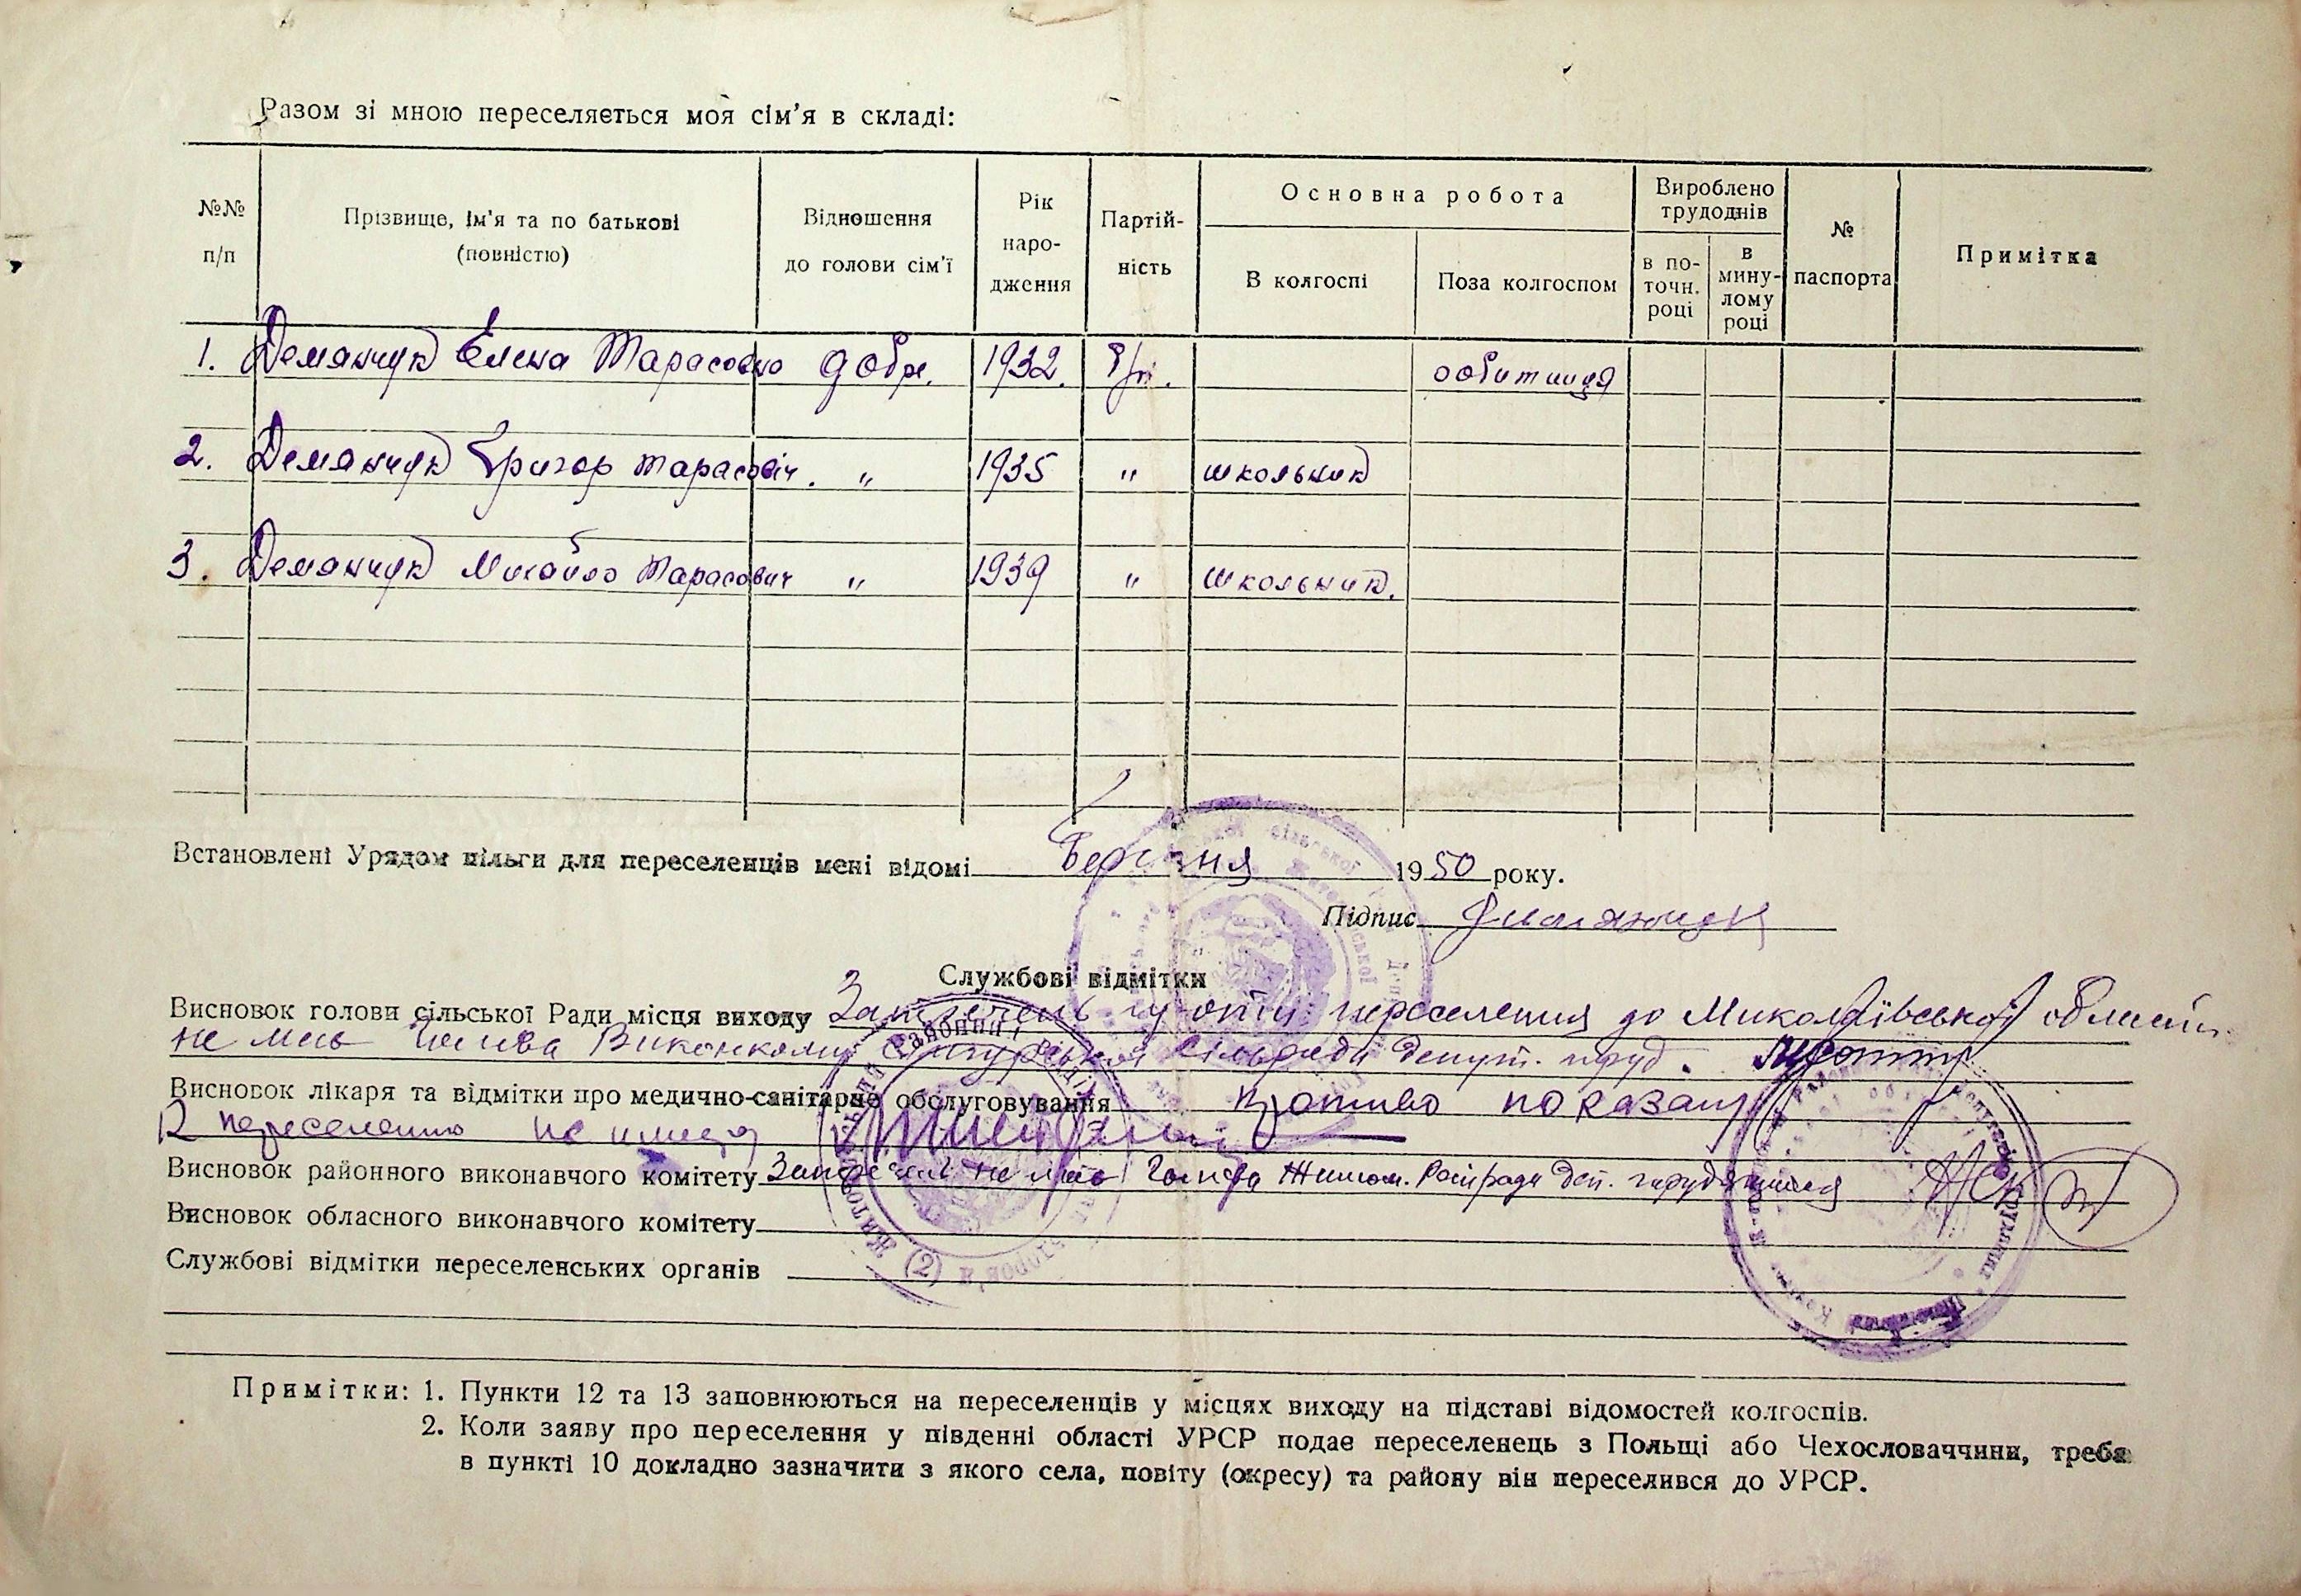 Разом зі мною переселяється моя сім'я в складі:
№№ п/п
Прізвище, ім'я та по батькові (повністю)
Відношення до голови сім'ї
Рік наро- дження
Партій- ність
Основна робота
В колгоспі
Поза колгоспом
Вироблено трудоднів
в по- точн. році
в мину- лому році
№ паспорта
Примітка
1. Демянчук Елена Тарасовна 1932. б/п.
2. Демянчук Григор Тарасовіч. " 1935 " школьник
3. Демянчук Михайло Тарасович " 1939 " школьник.
Встановлені Урядом пільги для переселенців мені відомі Березня 1950 року.
Підпис
Службові відмітки
Висновок голови сільської Ради місця виходу Заперечень проти переселения до Миколаївської области
не має Голова Виконкому Сільради депут. труд.
Висновок лікаря та відмітки про медично-санітарне обслуговування противо показан
К переселению не имеет
Висновок районного виконавчого комітету Заперечень не має Голова Житом. Райради деп. трудящихся
Висновок обласного виконавчого комітету
Службові відмітки переселенських органів
Примітки: 1. Пункти 12 та 13 заповнюються на переселенців у місцях виходу на підставі відомостей колгоспів.
2. Коли заяву про переселення у південні області УРСР подає переселенець з Польщі або Чехословаччини, треба
в пункті 10 докладно зазначити з якого села, повіту (окресу) та району він переселився до УРСР.